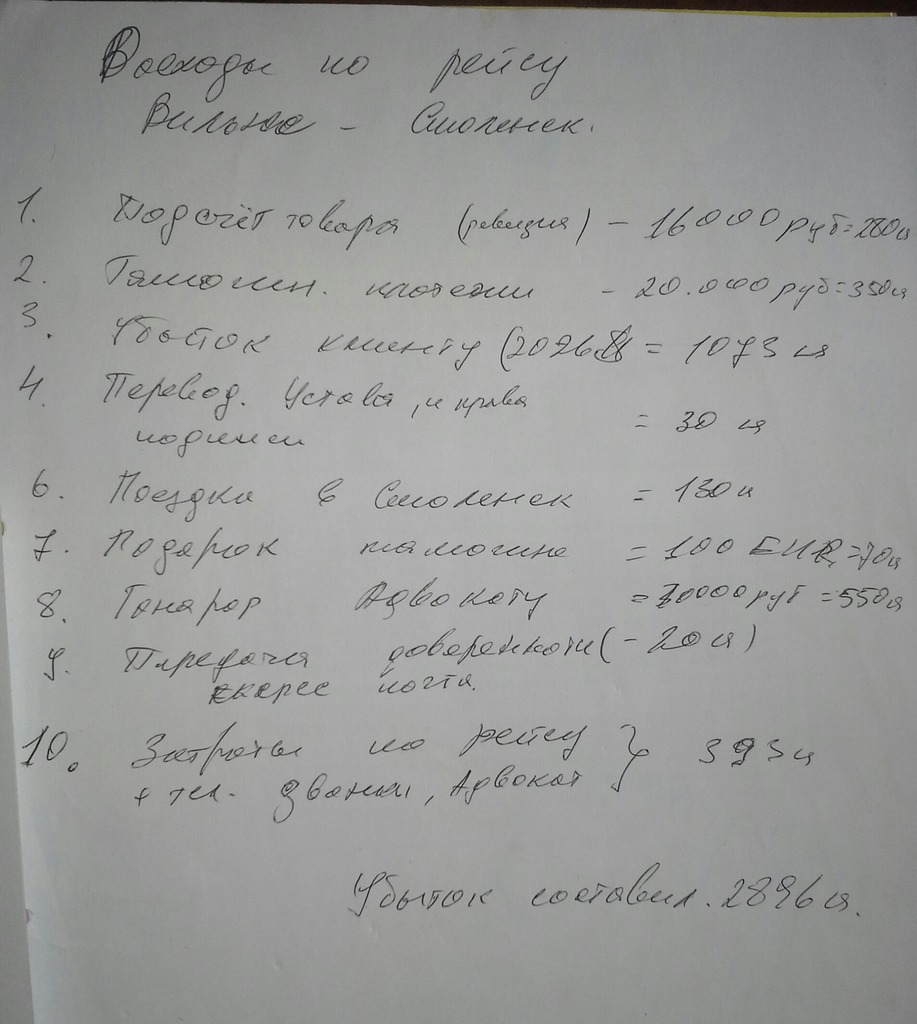 Расходы по рейсу
Вильнюс - Смоленск.
1. Подсчёт товара (ревизия) - 16000 руб=280
2. Таможен. платежи - 20.000 руб=350
3. Убыток клиенту = 1073
4. Перевод. Устава, и права
подписи = 30
6. Поездка в Смоленск = 130
7. Подарок таможне = 100 =70
8. Гонарар Адвокату = руб =550
9. Передача (-20
почта.
10. Затраты по рейсу } 393
+ тел. звонки, Адвокат
Убыток составил. 2896